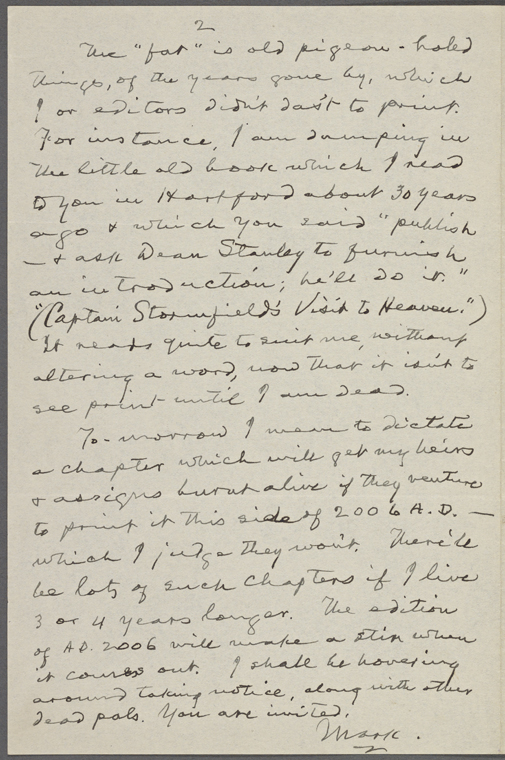 2
The "fat" is old pigeon-holed
things, of the years gone by, which
I or editors didn't das't to print.
For instance, I am dumping in
the little old book which I read
to you in Hartford about 30 years
ago & which you said "publish
— & ask Dean Stanley to furnish
an introduction; he'll do it."
("Captain Stormfield's Visit to Heaven.")
It reads quite to suit me, without
altering a word, now that it isn't to
see print until I am dead.
To-morrow I mean to dictate
a chapter which will get my heirs
& assigns burnt alive if they venture
to print it this side of 2006 A.D. —
which I judge they won't. There'll
be lots of such chapters if I live
3 or 4 years longer. The edition
of A.D. 2006 will make a stir when
it comes out. I shall be hovering
around taking notice, along with other
dead pals. You are invited.
Mark.